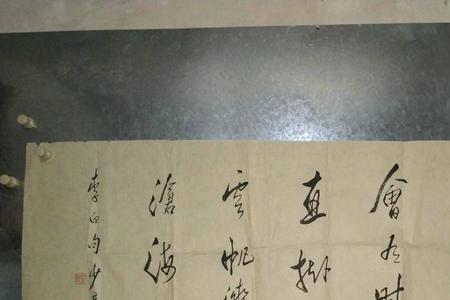 會有時
直掛
雲帆濟
滄海
李白句